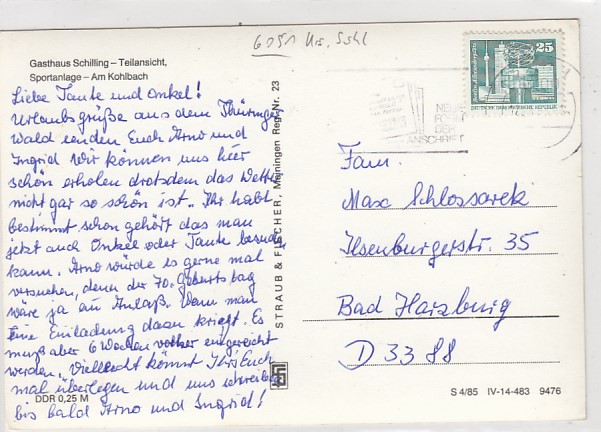 6051 Krs. Suhl
Gasthaus Schilling – Teilansicht,
Sportanlage – Am Kohlbach
Liebe Tante und Onkel!
Urlaubsgrüße aus dem Thüringer
Wald senden Euch Arno und
Ingrid Wir können uns hier
schön erholen drotsdem das Wetter
nicht gar so schön ist. Ihr habt
bestimmt schon gehört das man
jetzt auch Onkel oder Tante besuchen
kann. Arno würde es gerne mal
versuchen, denn der 70. Geburtstag
wäre ja ein Anlaß. Wenn man
eine Einladung dazu kriegt. Es
muß aber 6 Wochen vorher eingereicht
werden. Vielleicht könnt Ihr Euch
mal überlegen und uns schreiben
bis bald Arno und Ingrid!
DDR 0,25 M
STRAUB & FISCHER, Meiningen Reg.-Nr. 23
25
DEUTSCHE DEMOKRATISCHE REPUBLIK
DER
ANSCHRIFT
Fam.
Max Schlossarek
Ilsenburgerstr. 35
Bad Harzburg
D 3388
S 4/85 IV-14-483 9476